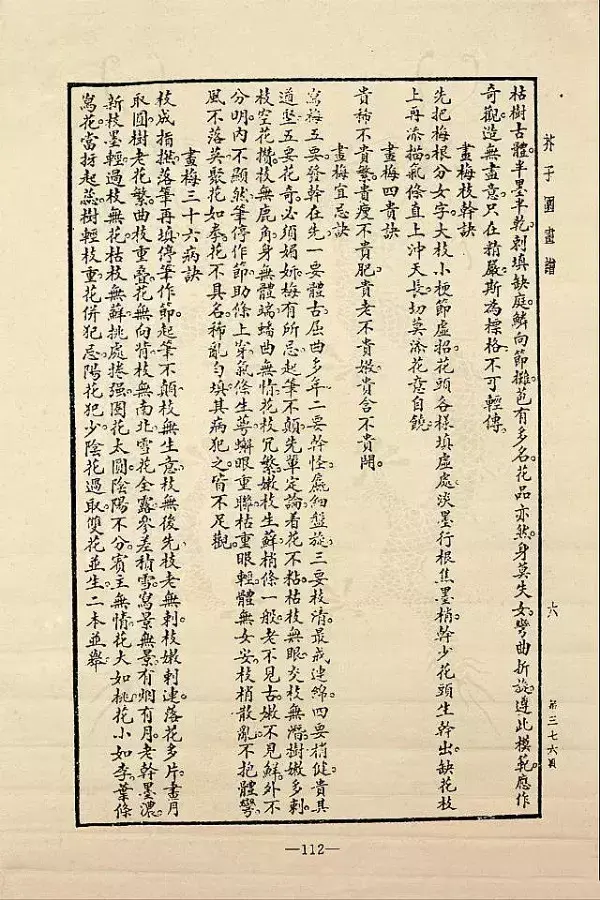 芥子園畫譜
六
第三七六頁
枯樹古體。半墨半乾。刺填缺庭。鱗向節攤。苞有多名。花品亦然。身莫失女。彎曲折旋。遵此模範。應作
奇觀。造無盡意。只在精嚴。斯為標格。不可輕傳。
畫梅枝幹訣
先把梅根分女字。大枝小梗節虛招。花頭各樣填虛處。淡墨行根焦墨梢。幹少花頭生幹出。缺花枝
上再添描。氣條直上沖天長。切莫添花意自饒。
畫梅四貴訣
貴稀不貴繁。貴瘦不貴肥。貴老不貴嫩。貴含不貴開。
畫梅宜忌訣
寫梅五要。發幹在先。一要體古。屈曲多年。二要幹怪。麄細盤旋。三要枝清。最戒連綿。四要梢健。貴其
遒堅。五要花奇。必須媚妍。梅有所忌。起筆不顛。先輩定論。着花不粘。枯枝無眼。交枝無潛。樹嫩多刺。
枝空花攢。枝無鹿角。身無體端。蟠曲無情。花枝冗繁。嫩枝生蘚。梢條一般。老不見古。嫩不見鮮。外不
分明。內不顯然。筆停作節。助條上穿。氣條生萼。蠏眼重聯。枯重眼輕。體無女安。枝梢散亂。不抱體彎。
風不落英。聚花如拳。花不具名。稀亂勻填。其病犯之。皆不足觀。
畫梅三十六病訣
枝成指撚。落筆再填。停筆作節。起筆不顛。枝無生意。枝無後先。枝老無刺。枝嫩刺連。落花多片。畫月
取圓。樹老花繁。曲枝重疊。花無向背。枝無南北。雪花全露。參差積雪。寫景無景。有烟有月。老幹墨濃。
新枝墨輕。過枝無花。枯枝無蘚。挑處捲强。圈花太圓。陰陽不分。賓主無情。花大如桃。花小如李。葉條
寫花。當枒起蕊。樹輕枝重。花併犯忌。陽花犯少。陰花過取。雙花並生。二本並舉
—112—